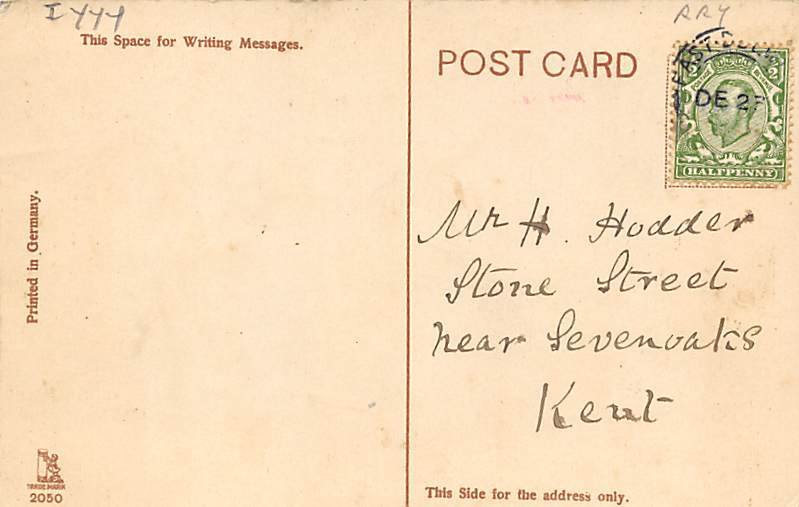 This Space for Writing Messages.
Printed in Germany.
TRADE MARK
2050
POST CARD
DE 2
HALFPENNY
Mr H. Hodder
Stone Street
near Sevenoaks
Kent
This Side for the address only.